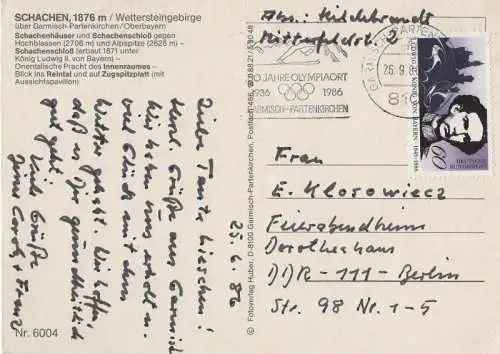 SCHACHEN, 1876 m / Wettersteingebirge
über Garmisch-Partenkirchen/Oberbayern
Schachenhäuser und Schachenschloß gegen
Hochblassen (2706 m) und Alpspitze (2628 m) –
Schachenschloß (erbaut 1871 unter
König Ludwig II. von Bayern) –
Orientalische Pracht des Innenraumes –
Blick ins Reintal und auf Zugspitzplatt (mit
Aussichtspavillon)
Liebe Tante Lieschen!
Herzl. Grüße aus Garmisch
Wir haben uns erholt u.
viel Glück mit dem
Wetter gehabt. Wir hoffen
daß es Dir gesundheitlich
gut geht.
Viele Grüße
Franz
25.9.86
Nr. 6004
© Fotoverlag Huber, D-8100 Garmisch-Partenkirchen, Postfach
Abs.: Hildebrandt
JAHRE OLYMPIAORT
1936 1986
GARMISCH-PARTENKIRCHEN
GARMISCH-PARTENKIRCHEN
26.9.86
LUDWIG II. KÖNIG VON BAYERN 1845-1886
60
DEUTSCHE BUNDESPOST
Frau
E. Klosowiecz
Feierabendheim
Dorotheahaus
DDR - 111 - Berlin
Str. 98 Nr. 1-5